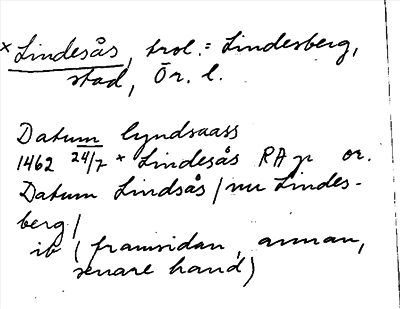 × Lindesås, trol. = Lindesberg,
stad, Ör. l.
Datum lyndsaass
1462 24/7 × Lindesås RAp or.
Datum Lindsås / nu Lindes-
berg /
ib (framsidan, annan,
senare hand)